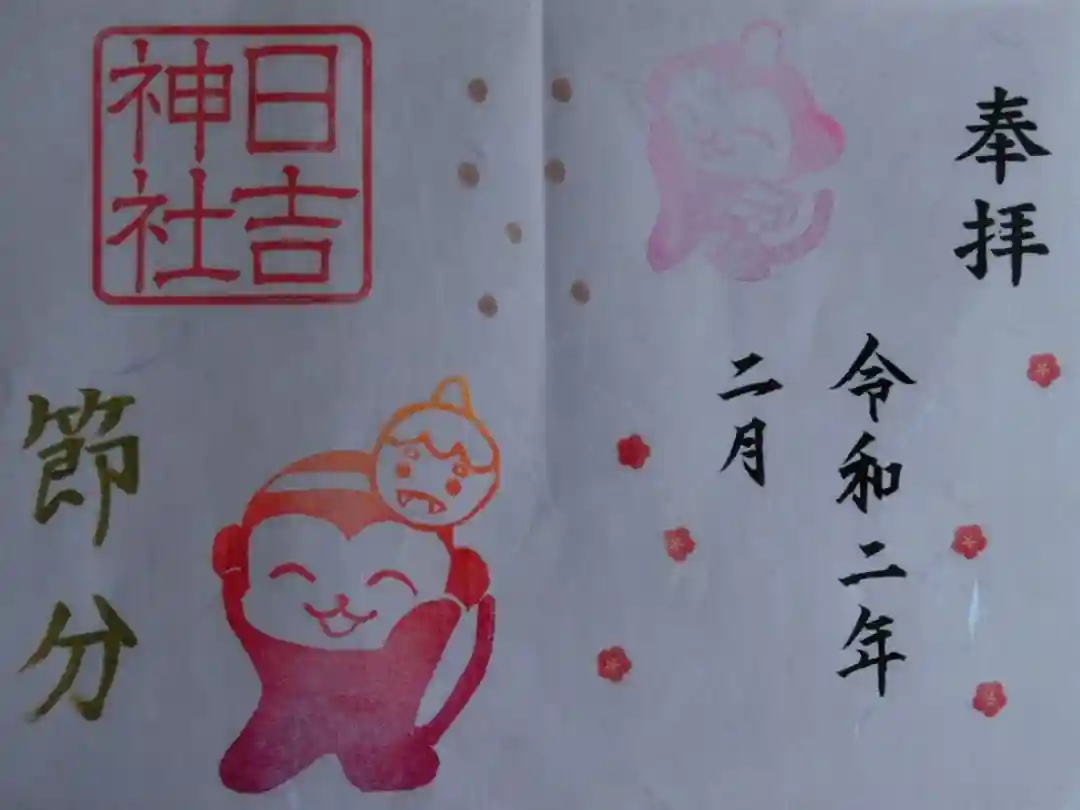 奉拝
令和二年
二月
日吉
神社
節分